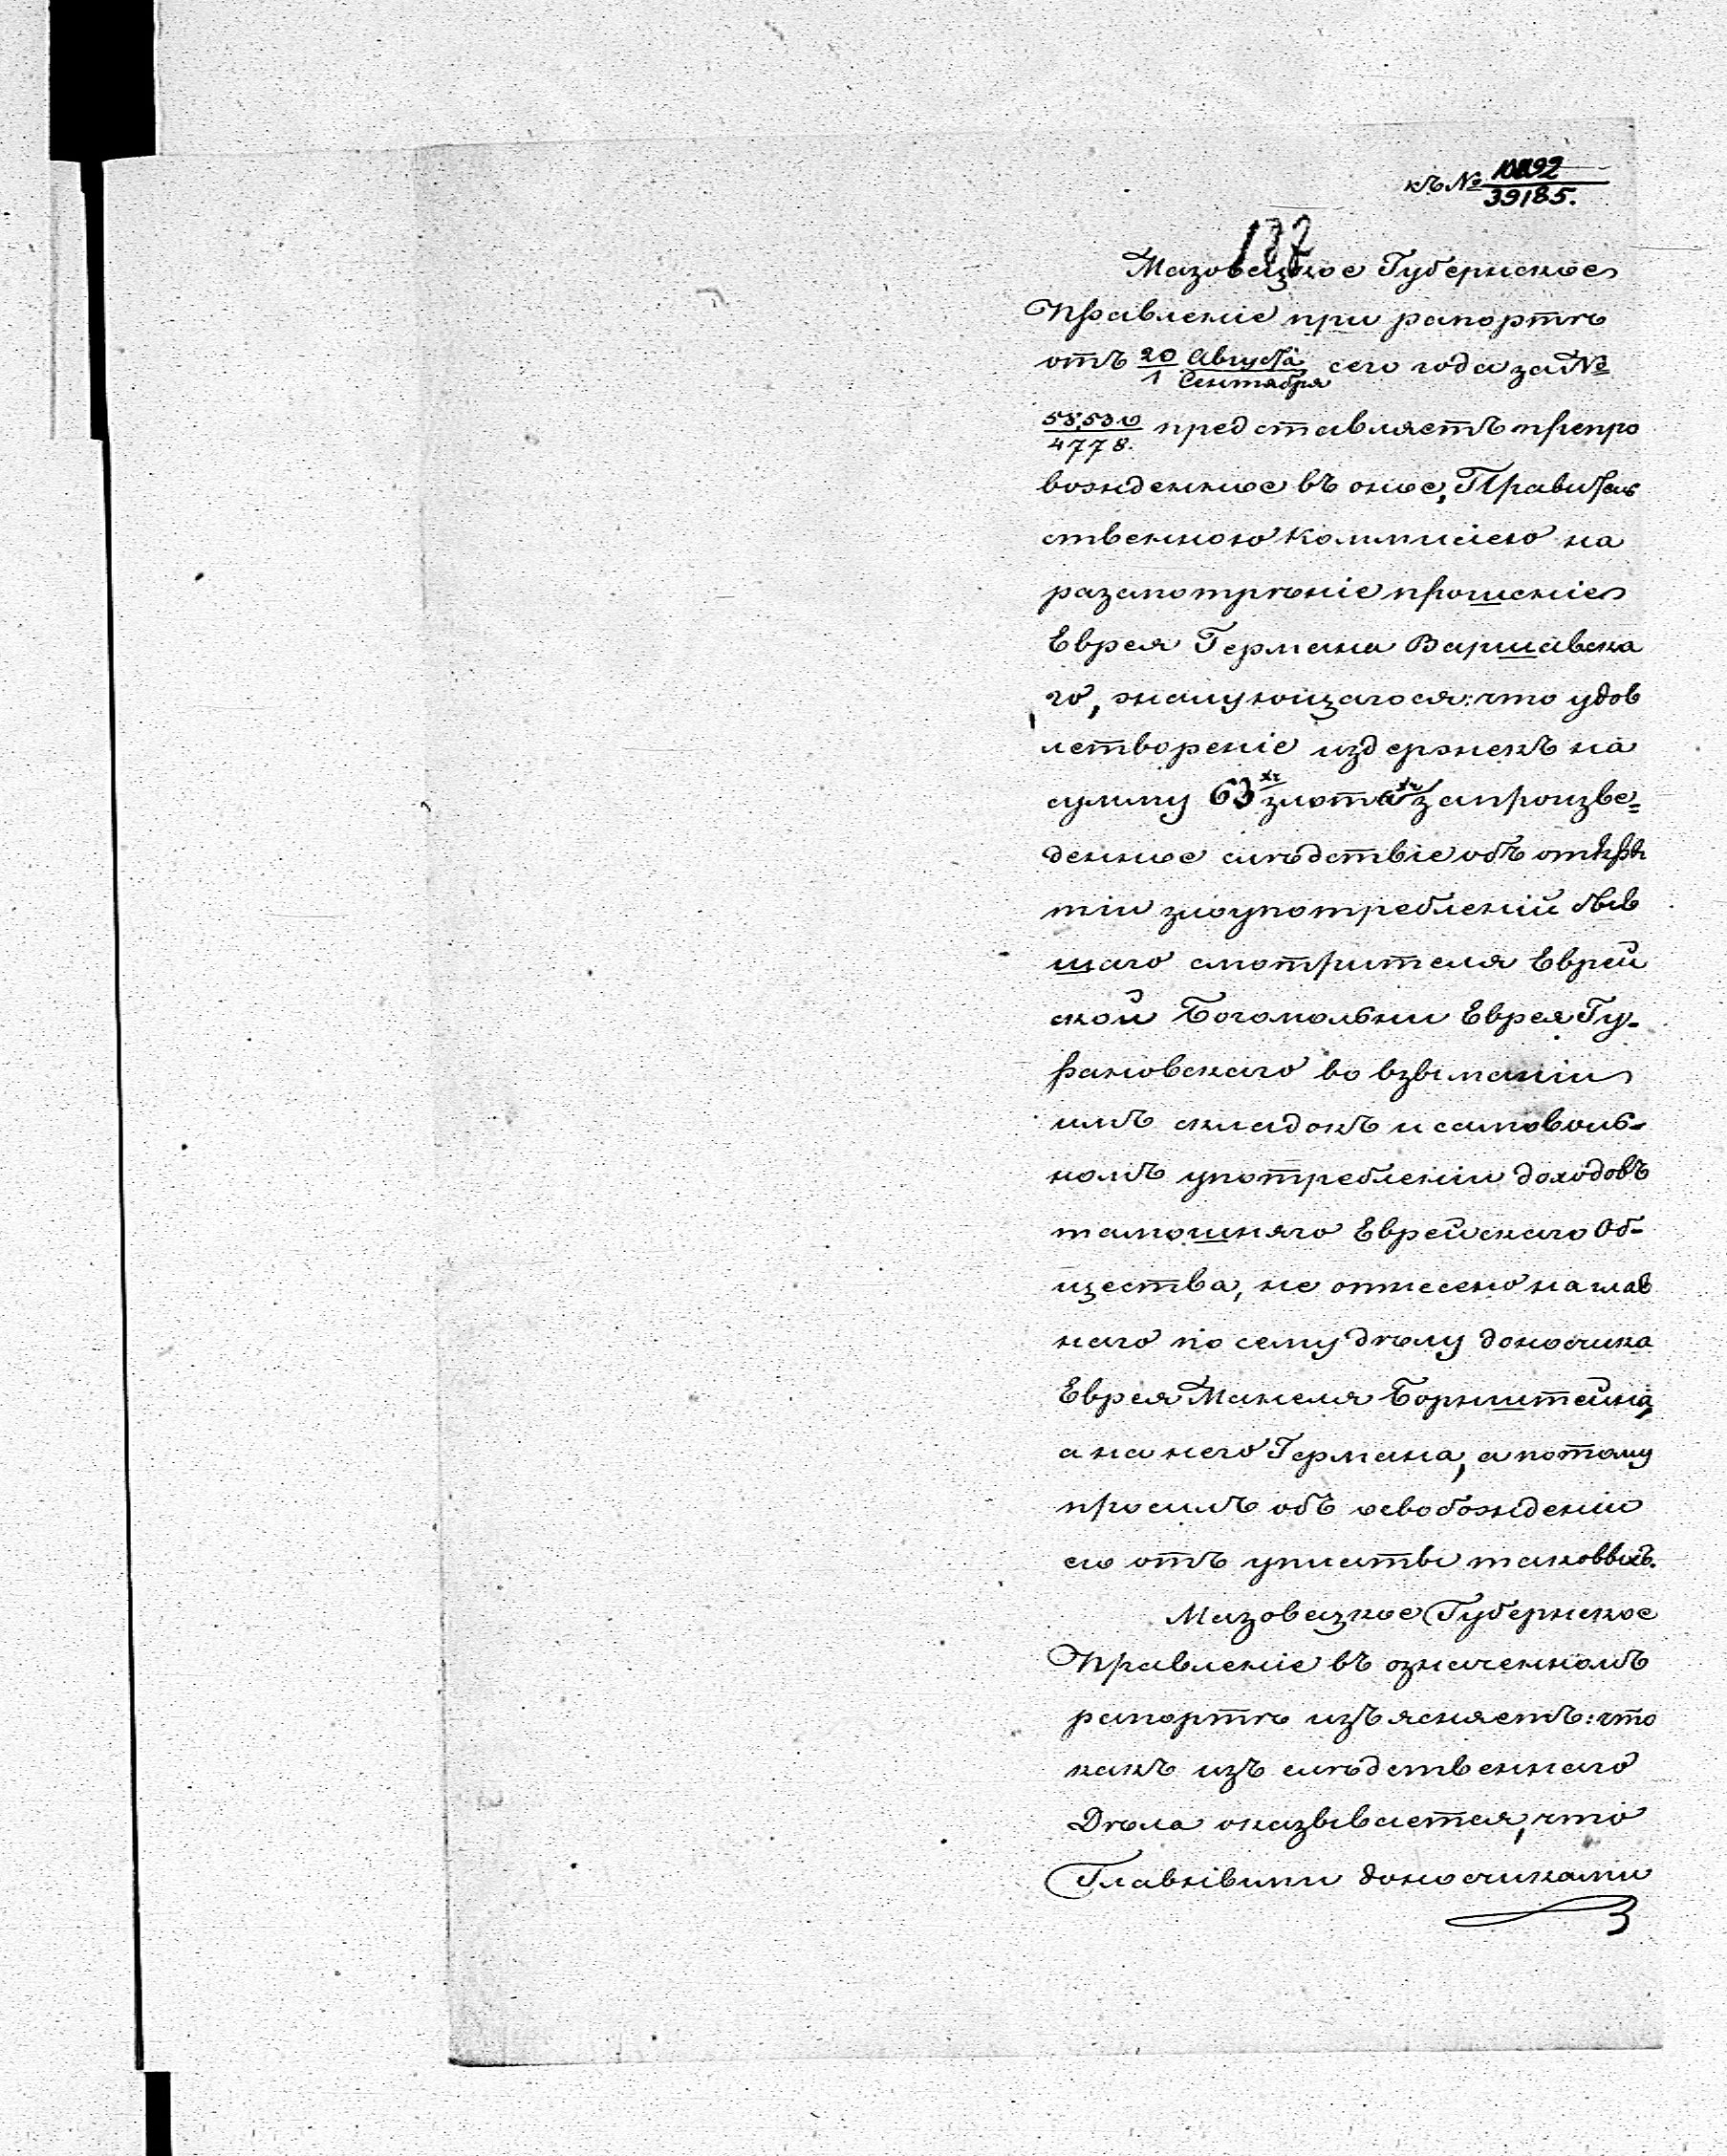 къ № 10892/39185.
137
Мазовецкое Губернское
Правленіе при рапортѣ
отъ 20 Августа/1 Сентября сего года за №
58,530/4778. представляетъ препро
вожденное въ оное, Правитель
ственною Коммисіею на
разсмотрѣніе прошеніе
Еврея Германа Варшавска
го, жалующагося: что удов
летвореніе издержекъ на
сумму 63 злота за произве=
денное слѣдствіе объ откры
тіи злоупотребленій быв
шаго смотрителя Еврей
ской Богомольни Еврея Гу-
рановскаго во взыманіи
имъ складокъ и самоволь-
номъ употребленіи доходовъ
тамошняго Еврейскаго Об-
щества, не отнесено на глав
наго по сему дѣлу доносчика
Еврея Манеля Борнштейна,
а на него Германа, а потому
просилъ объ освобожденіи
его отъ уплаты таковыхъ.
Мазовецкое Губернское
Правленіе въ означенномъ
рапортѣ изъясняетъ: что
какъ изъ слѣдственнаго
Дѣла оказывается, что
Главными доносчиками